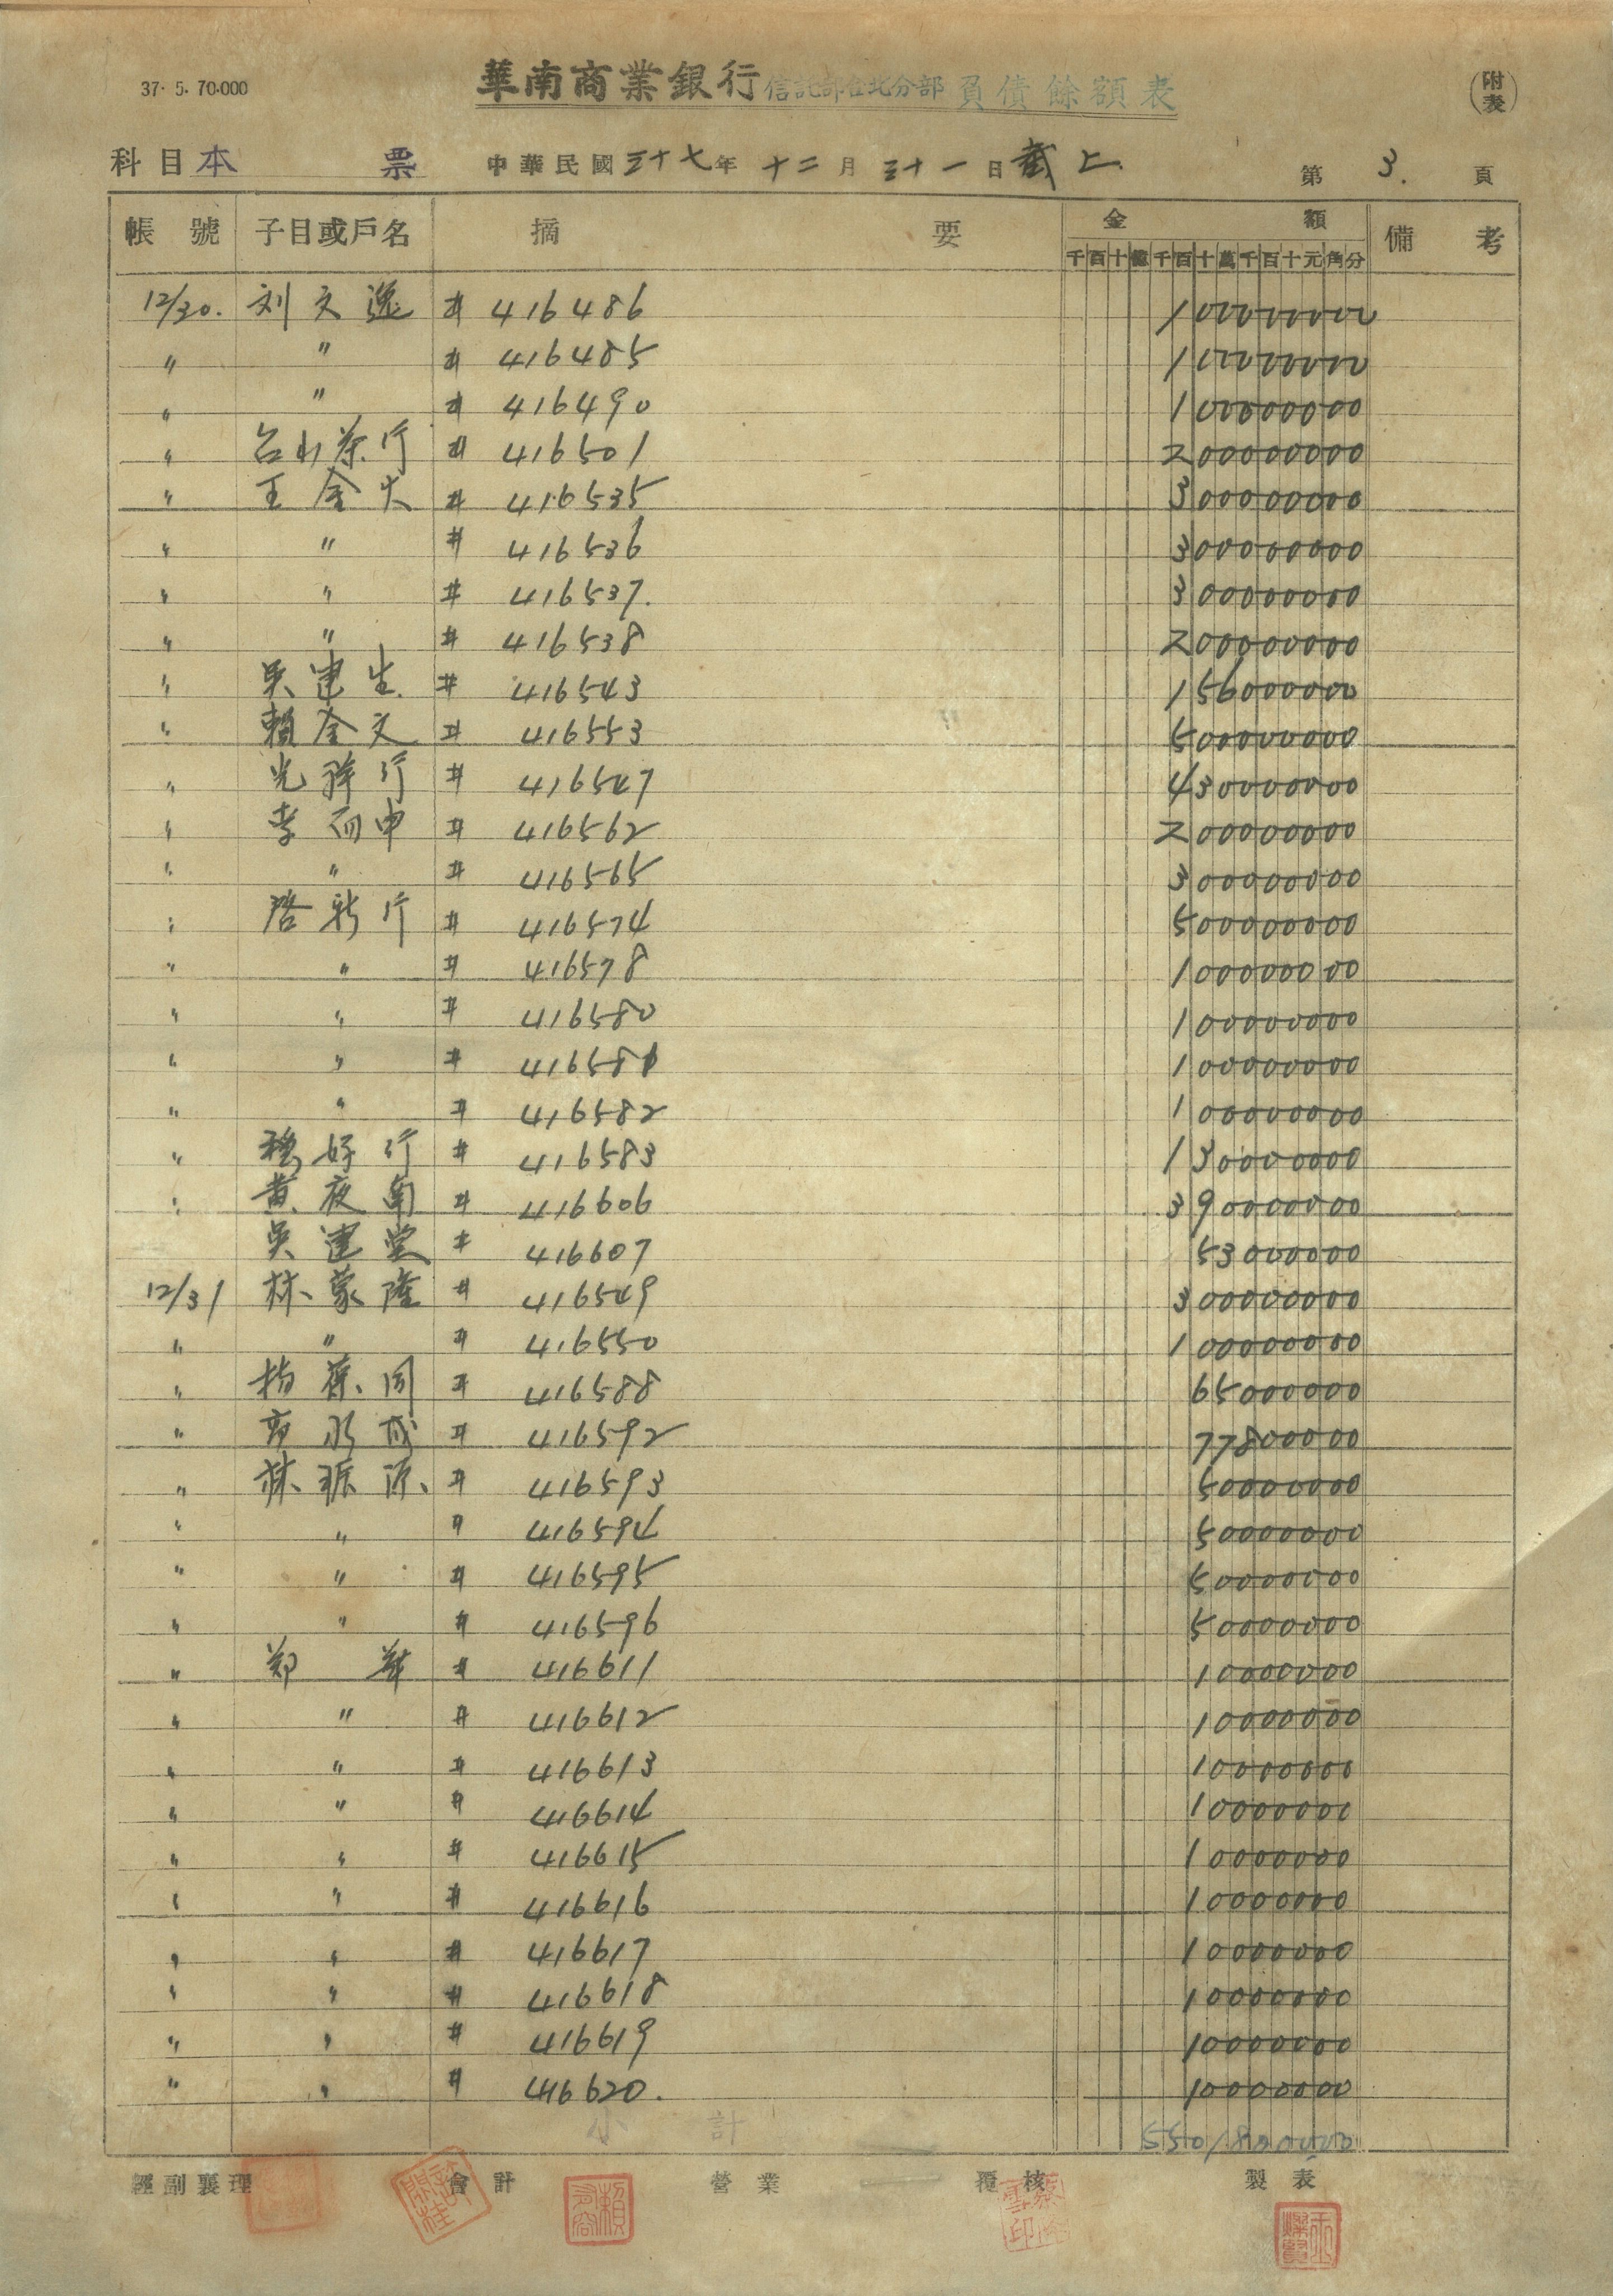 37. 5. 70.000
華南商業銀行 信託部台北分部 負債餘額表
(附表)
科目 本票 中華民國三十七年 十二月 三十一日 截止 第 3. 頁
帳號 子目或戶名 摘要 金額 備考
千百十億千百十萬千百十元角分
12/30. 刘文逸 # 416486 100000000
〃 〃 # 416485 100000000
〃 〃 # 416490 100000000
〃 台山茶行 # 416501 200000000
〃 王金火 # 416535 300000000
〃 〃 # 416536 300000000
〃 〃 # 416537. 300000000
〃 〃 # 416538 200000000
〃 吳建生 # 416543 156000000
〃 賴金文 # 416553 500000000
〃 光祥行 # 416547 430000000
〃 李西申 # 416562 200000000
〃 〃 # 416565 300000000
〃 啓新行 # 416574 500000000
〃 〃 # 416578 100000000
〃 〃 # 416580 100000000
〃 〃 # 416581 100000000
〃 〃 # 416582 100000000
〃 穩好行 # 416583 130000000
〃 黃夜南 # 416606 390000000
吳建堂 # 416607 53000000
12/31 林蒙隆 # 416549 300000000
〃 〃 # 416550 100000000
〃 # 416588 65000000
〃 永成 # 416592 77800000
〃 林振源 # 416593 50000000
〃 〃 # 416594 50000000
〃 〃 # 416595 50000000
〃 〃 # 416596 50000000
〃 鄭 # 416611 10000000
〃 〃 # 416612 10000000
〃 〃 # 416613 10000000
〃 〃 # 416614 10000000
〃 〃 # 416615 10000000
〃 〃 # 416616 10000000
〃 〃 # 416617 10000000
〃 〃 # 416618 10000000
〃 〃 # 416619 10000000
〃 〃 # 416620. 10000000
小計 5501800000
經副襄理 會計 營業 覆核 製表